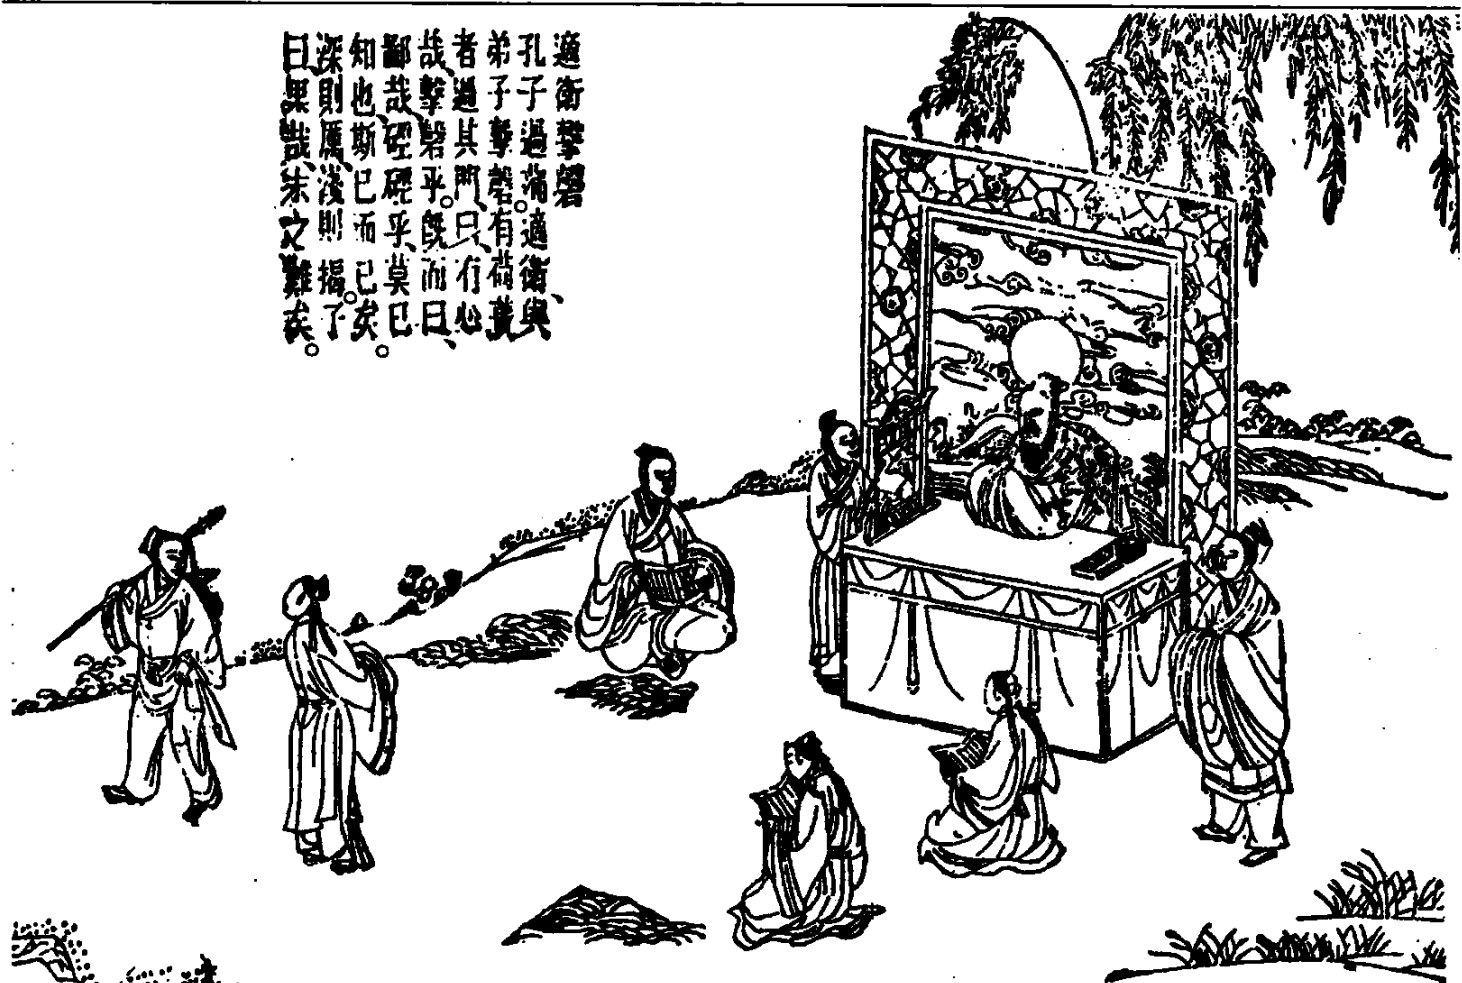 適衛擊磬
孔子過蒲。適衛、與
弟子擊磬有荷蕢
者過其門、曰、有心
哉、擊磬乎。既而曰、
鄙哉、硜硜乎、莫已
知也、斯已而已矣。
深則厲、淺則揭。子
曰、果哉、末之難矣。